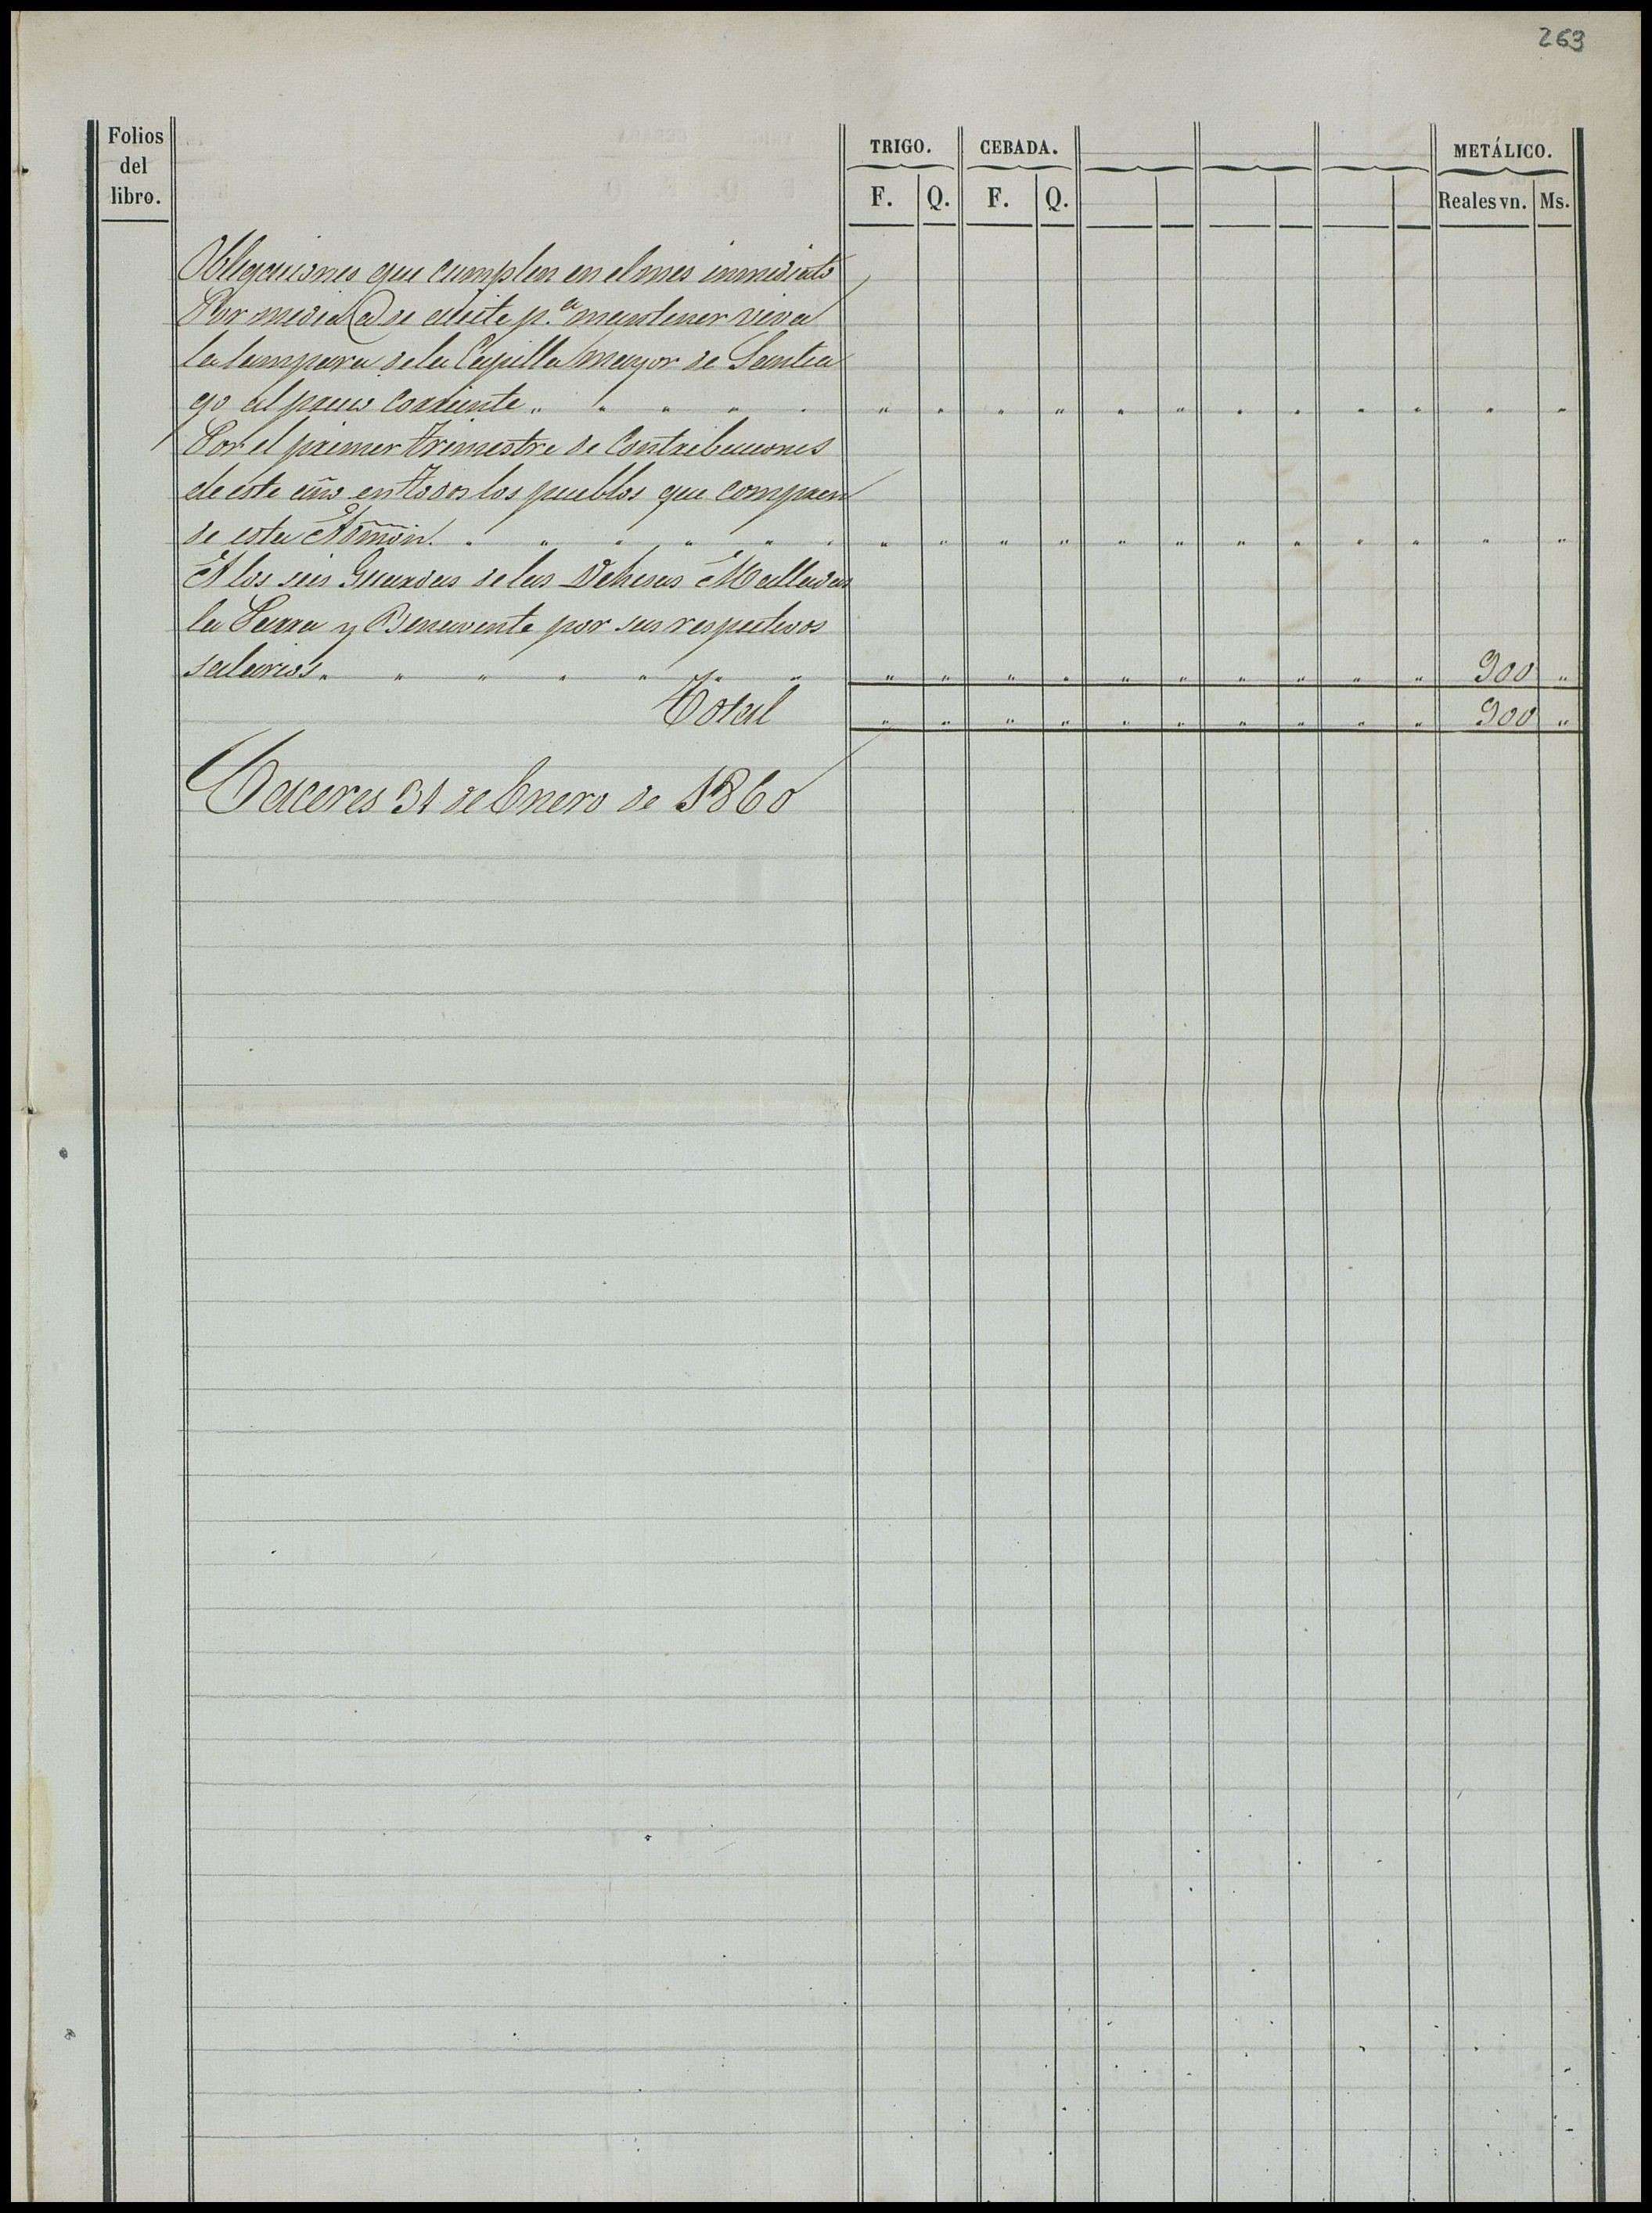 263
Folios del libro.
TRIGO. CEBADA. METÁLICO.
F. Q. F. Q. Reales vn. Ms.
Obligaciones que cumplen en el mes inmediato
Por media @ de aceite p.ª mantener viva
la lampara de la Capilla mayor de Santia
go al precio corriente " " " " " " " " " " " " " " " "
Por el primer trimestre de Contribuciones
de este año en todos los pueblos que compren
de esta Admon. " " " " " " " " " " " " " " " " " "
A los seis Guardas de las Dehesas Malladas
la Parra y Benavente por sus respectivos
salarios " " " " " " " " " " " " " " " " 900 "
Total " " " " " " " " " " 900 "
Caceres 31 de Enero de 1860